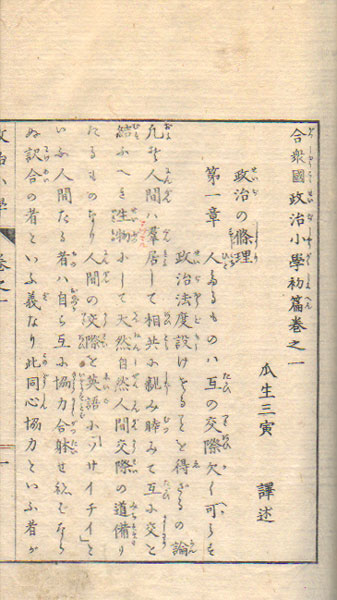 合衆國政治小學初篇巻之一
瓜生三寅 譯述
政治の條理
第一章 人たるものハ互の交際欠く可らす
政治法度設けさるを得さるの論
凡そ人間ハ羣居して相共に親み睦みて互に交を
結ふへき生物にして天然自然人間交際の道備り
たるものなり人間の交際を英語に「ソサイチイ」と
いふ人間たる者ハ自ら互に協力合躰せ ねばならぬ
ぬ訳合の者といふ義なり此同心協力といふ者が
政治小學 巻之一 一